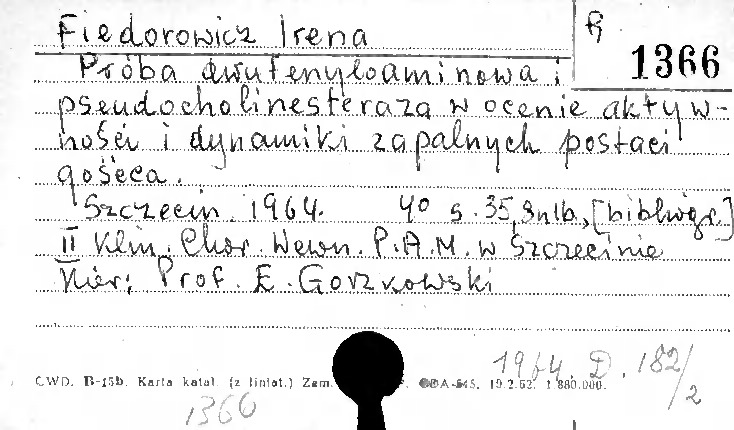 Fiedorowicz Irena
R
1366
Próba dwufenyloaminowa i
pseudocholinesteraza w ocenie aktyw-
ności i dynamiki zapalnych postaci
gośćca.
Szczecin. 1964. 4° s. 35, 3nlb., [bibliogr.]
II Klin. Chor. Wewn. P.A.M. w Szczecinie
Kier: Prof. E. Gorzkowski
1964. D. 182/2
CWD. B-15b. Karta katal. (z liniat.) Zam. 19.2.62. 1.880.000.
1366